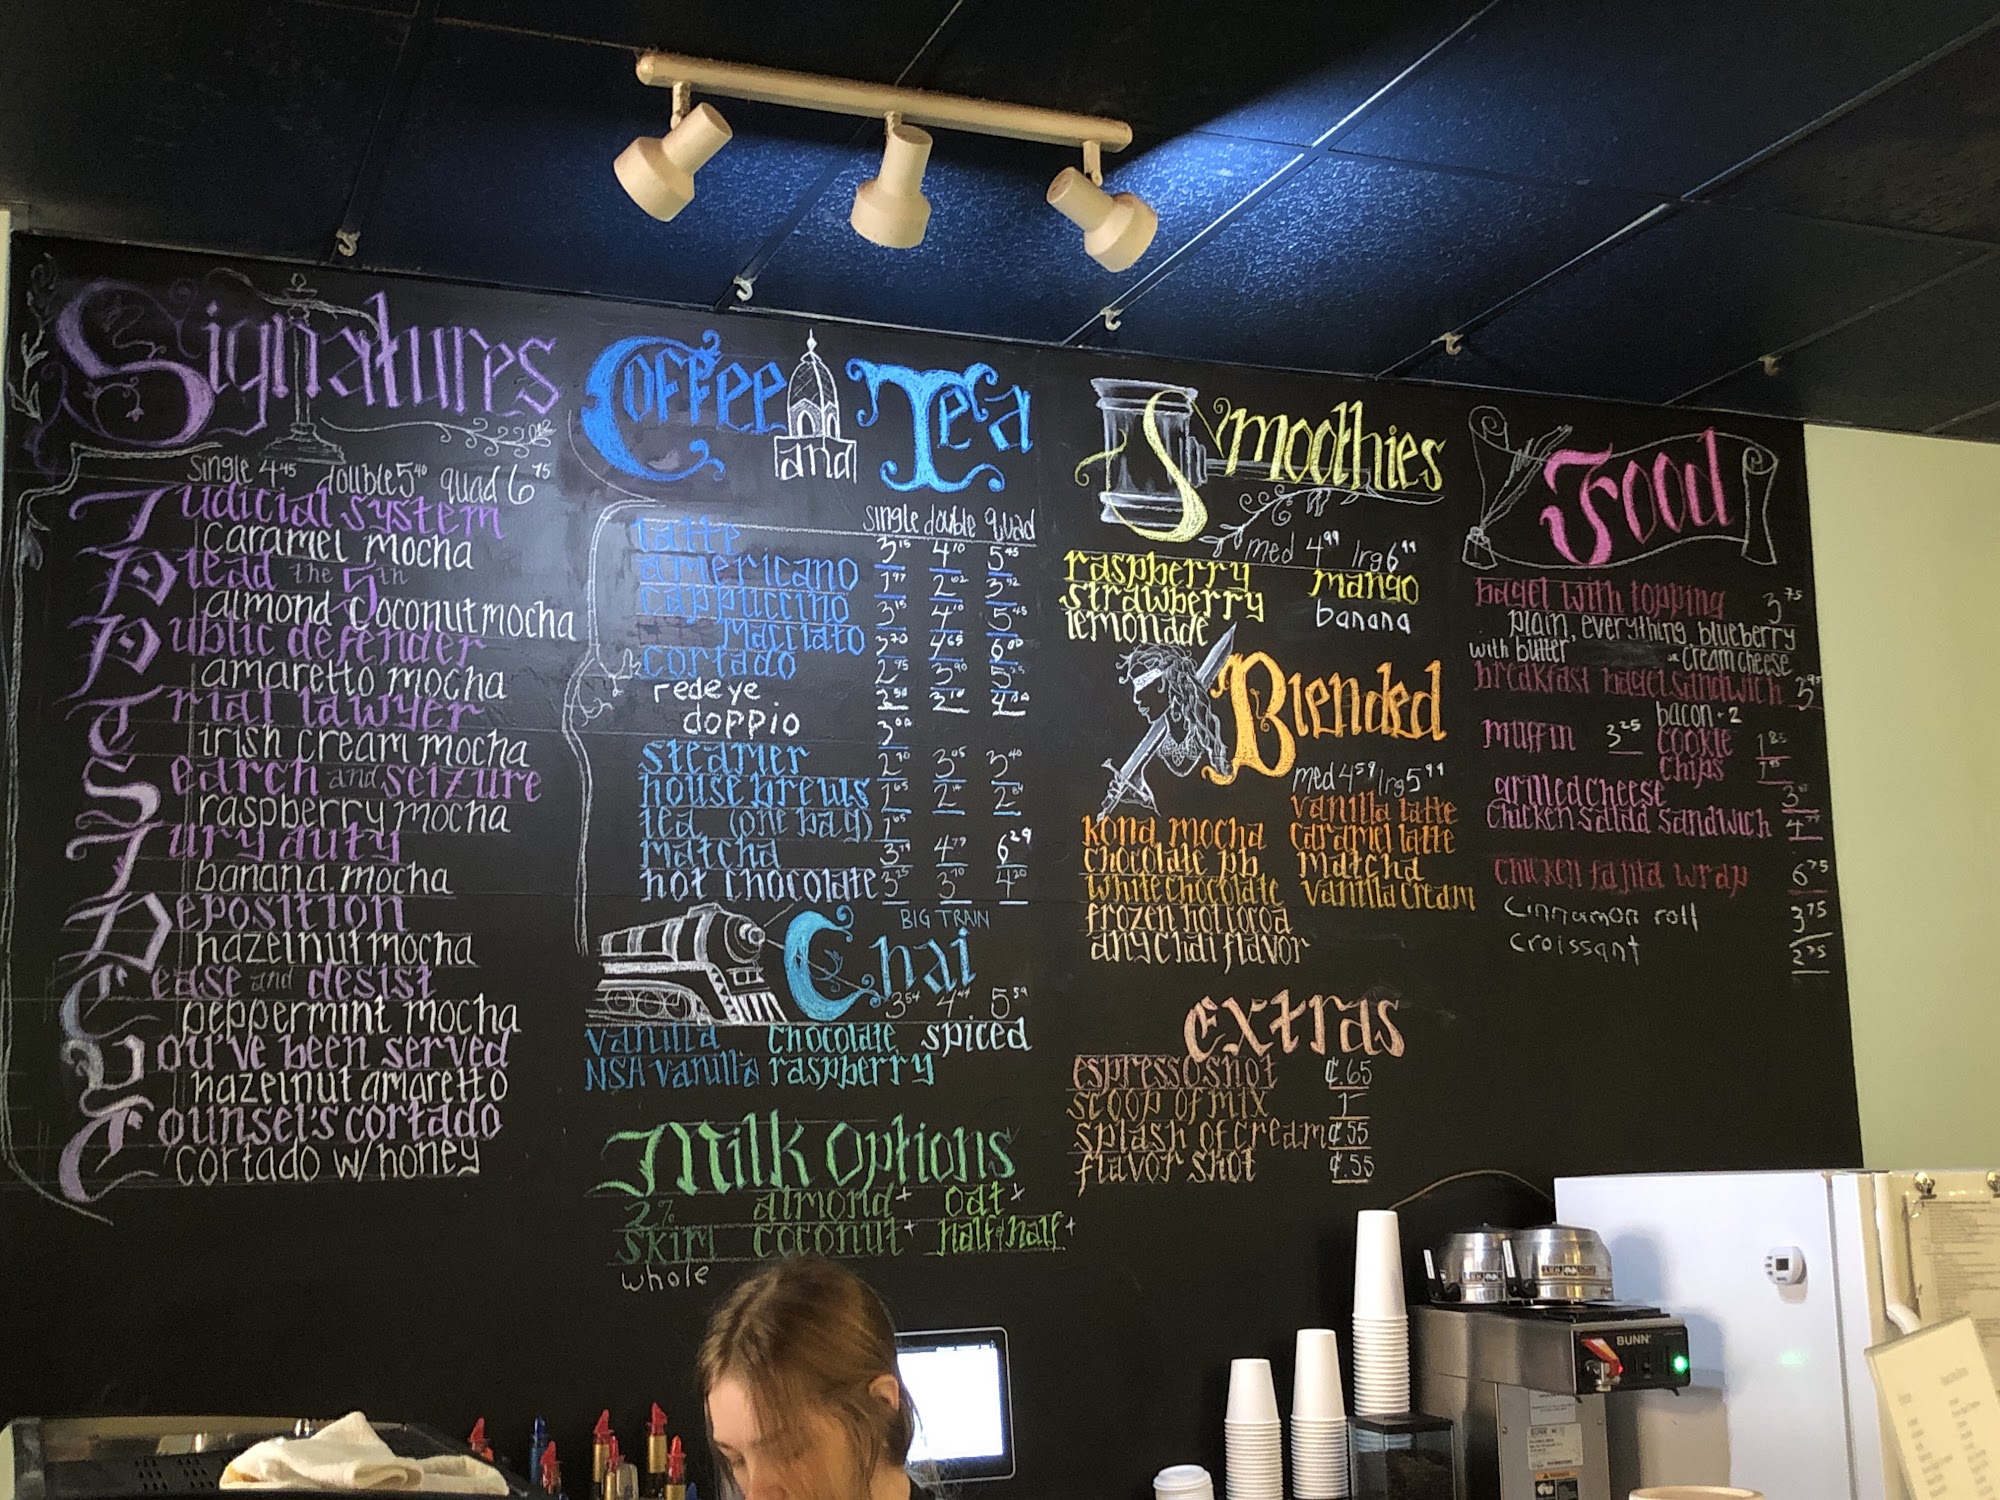 Signatures
single 4.45 double 5.40 quad 6.75
Judicial system
caramel mocha
Plead the 5th
almond coconut mocha
Public defender
amaretto mocha
Trial lawyer
irish cream mocha
Search and seizure
raspberry mocha
Jury duty
banana mocha
Deposition
hazelnut mocha
Cease and desist
peppermint mocha
You've been served
hazelnut amaretto
Counsel's cortado
cortado w/honey
Coffee and Tea
single double quad
latte 3.15 4.10 5.45
americano 1.97 2.62 3.92
cappuccino 3.15 4.10 5.45
macciato 3.70 4.65 6.00
cortado 2.95 3.90 5.25
redeye
doppio 3.00
steamer 2.70 3.05 3.40
house brews
tea (one bag)
matcha 3.79 4.79 6.29
hot chocolate 3.25 3.70 4.20
BIG TRAIN
Chai
3.54 4.44 5.59
vanilla chocolate spiced
NSA vanilla raspberry
Milk Options
2% almond+ oat+
skim coconut+ half&half+
whole
Smoothies
med 4.99 lrg 6.99
raspberry mango
strawberry banana
lemonade
Blended
med 4.59 lrg 5.99
vanilla latte
kona mocha caramel latte
chocolate pb matcha
white chocolate vanilla cream
frozen hot cocoa
any chai flavor
Extras
espresso shot ¢.65
scoop of mix 1-
splash of cream ¢.55
flavor shot ¢.55
Food
bagel with topping 3.75
plain, everything, blueberry
with butter or cream cheese
breakfast bagel sandwich
bacon - 2
muffin 3.25 cookie
chips
grilled cheese
chicken salad sandwich
chicken fajita wrap 6.75
cinnamon roll 3.75
croissant 2.75
BUNN